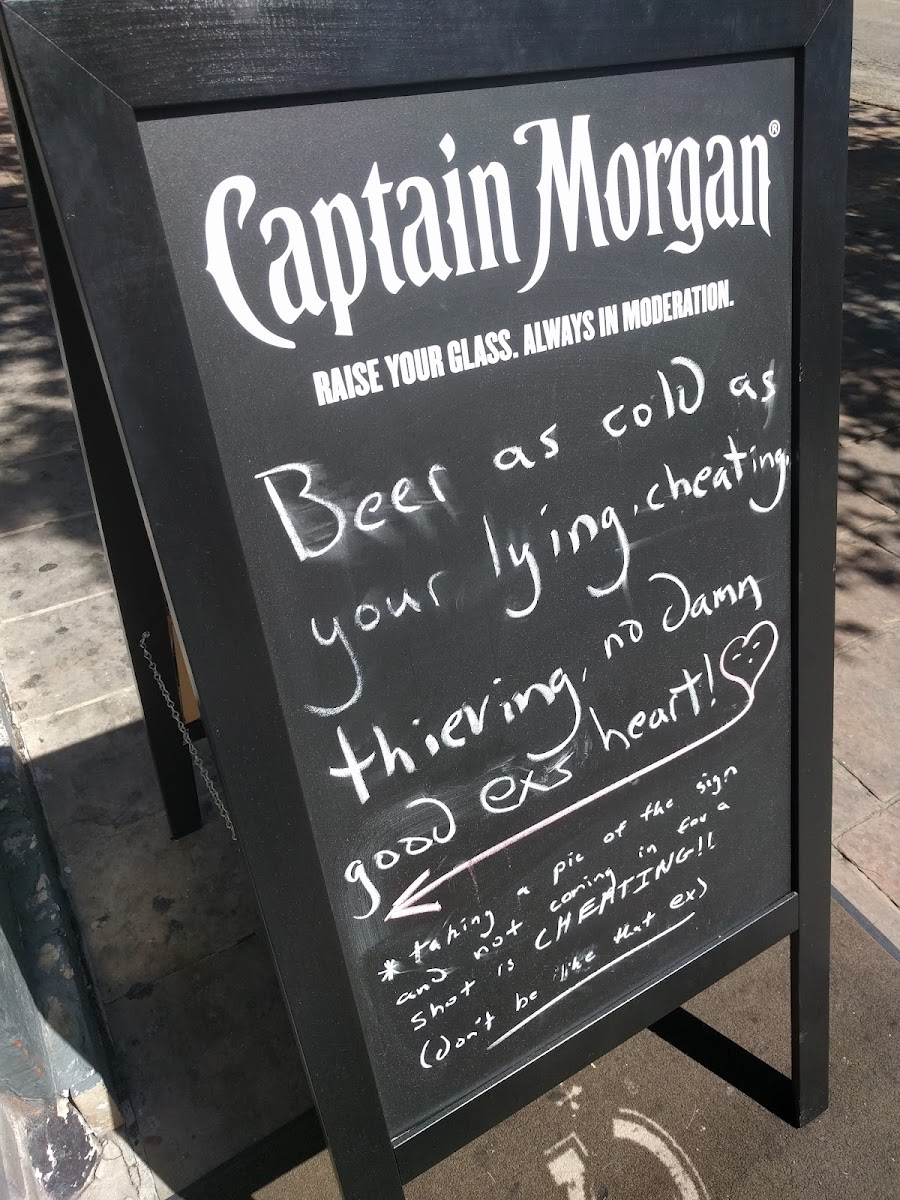 Captain Morgan®
RAISE YOUR GLASS. ALWAYS IN MODERATION.
Beer as cold as
your lying, cheating,
thieving, no damn
good exs heart!
*taking a pic of the sign
and not coming in for a
shot is CHEATING!!
(don't be like that ex)